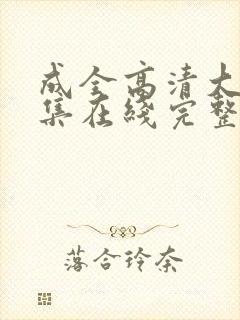 成全高清大
集在线完整
落合玲奈